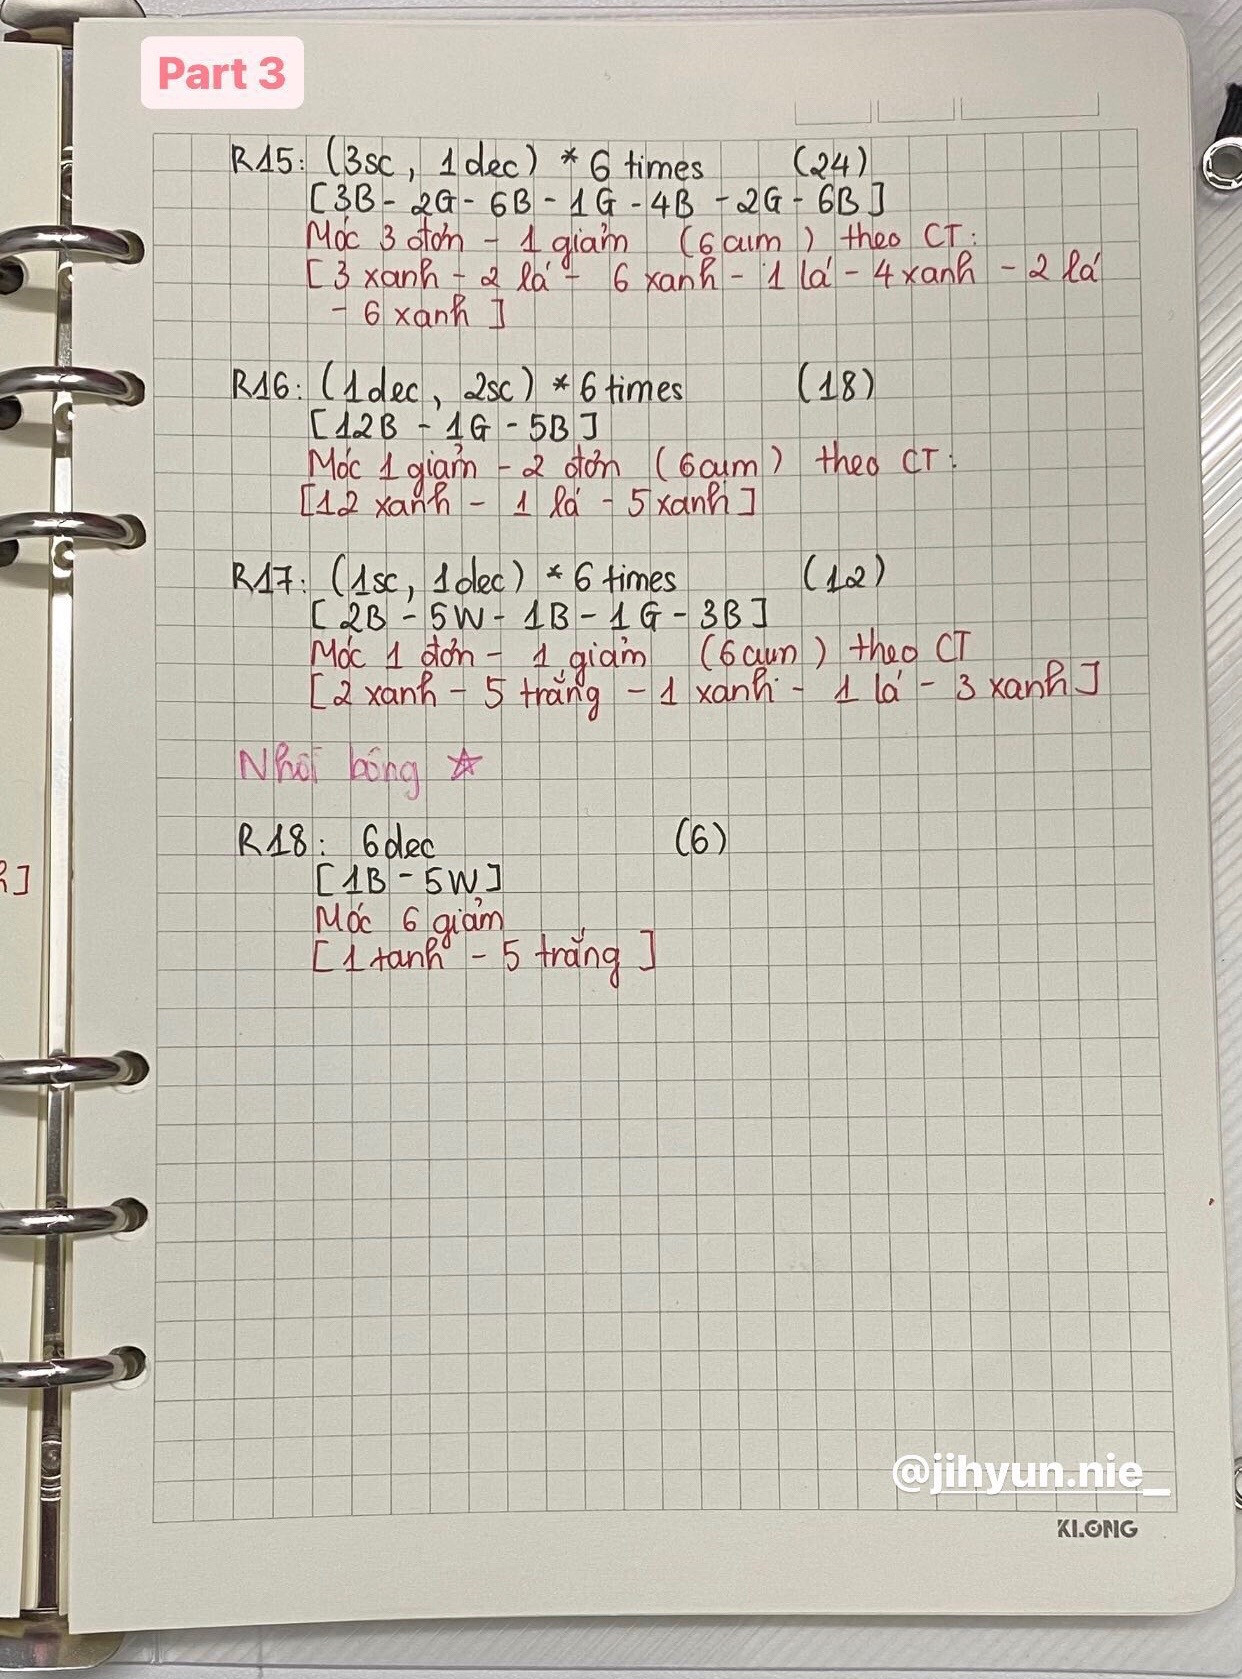 Part 3
R15: (3sc, 1dec) * 6 times (24)
[3B - 2G - 6B - 1G - 4B - 2G - 6B]
Móc 3 đơn - 1 giảm (6 cụm) theo CT:
[3 xanh - 2 lá - 6 xanh - 1 lá - 4 xanh - 2 lá
- 6 xanh]
R16: (1dec, 2sc) * 6 times (18)
[12B - 1G - 5B]
Móc 1 giảm - 2 đơn (6 cụm) theo CT:
[12 xanh - 1 lá - 5 xanh]
R17: (1sc, 1dec) * 6 times (12)
[2B - 5W - 1B - 1G - 3B]
Móc 1 đơn - 1 giảm (6 cụm) theo CT
[2 xanh - 5 trắng - 1 xanh - 1 lá - 3 xanh]
Nhồi bông ☆
R18: 6dec (6)
h]
[1B - 5W]
Móc 6 giảm
[1 tanh - 5 trắng]
@jihyun.nie_
KLONG